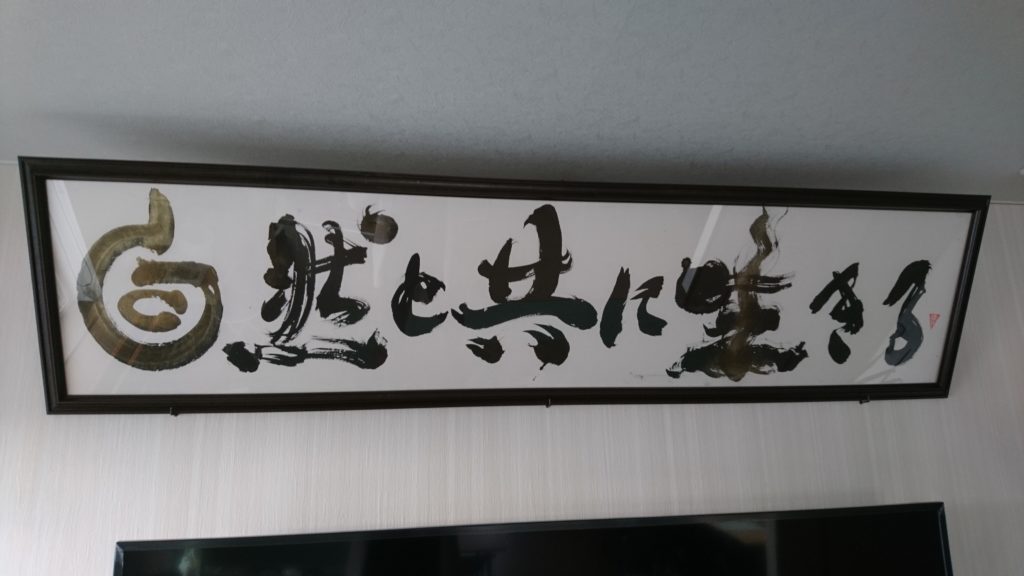 自然と共に生きる